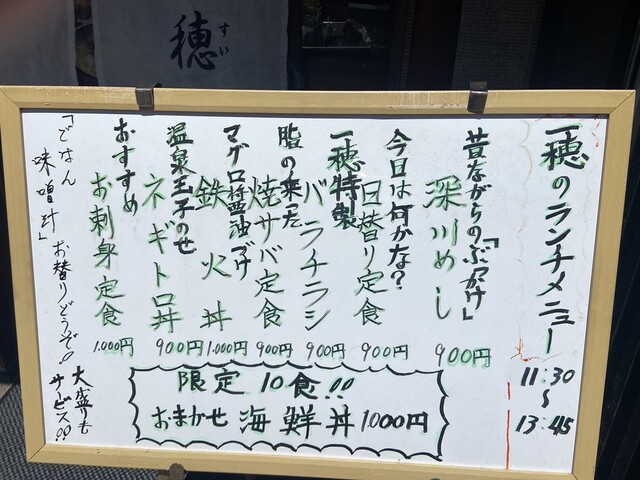 穂
すい
一穂のランチメニュー
11:30
〜
13:45
昔ながらの「ぶっかけ」
深川めし
900円
今日は何かな?
日替り定食
900円
一穂特製
バラチラシ
900円
脂の来た
焼サバ定食
900円
マグロ醤油づけ
鉄火丼
1.000円
温泉玉子のせ
ネギトロ丼
900円
おすすめ
お刺身定食
1.000円
「ごはん
味噌汁」お替りどうぞ!!
大盛りも
サービス!!
限定10食!!
おまかせ海鮮丼1.000円